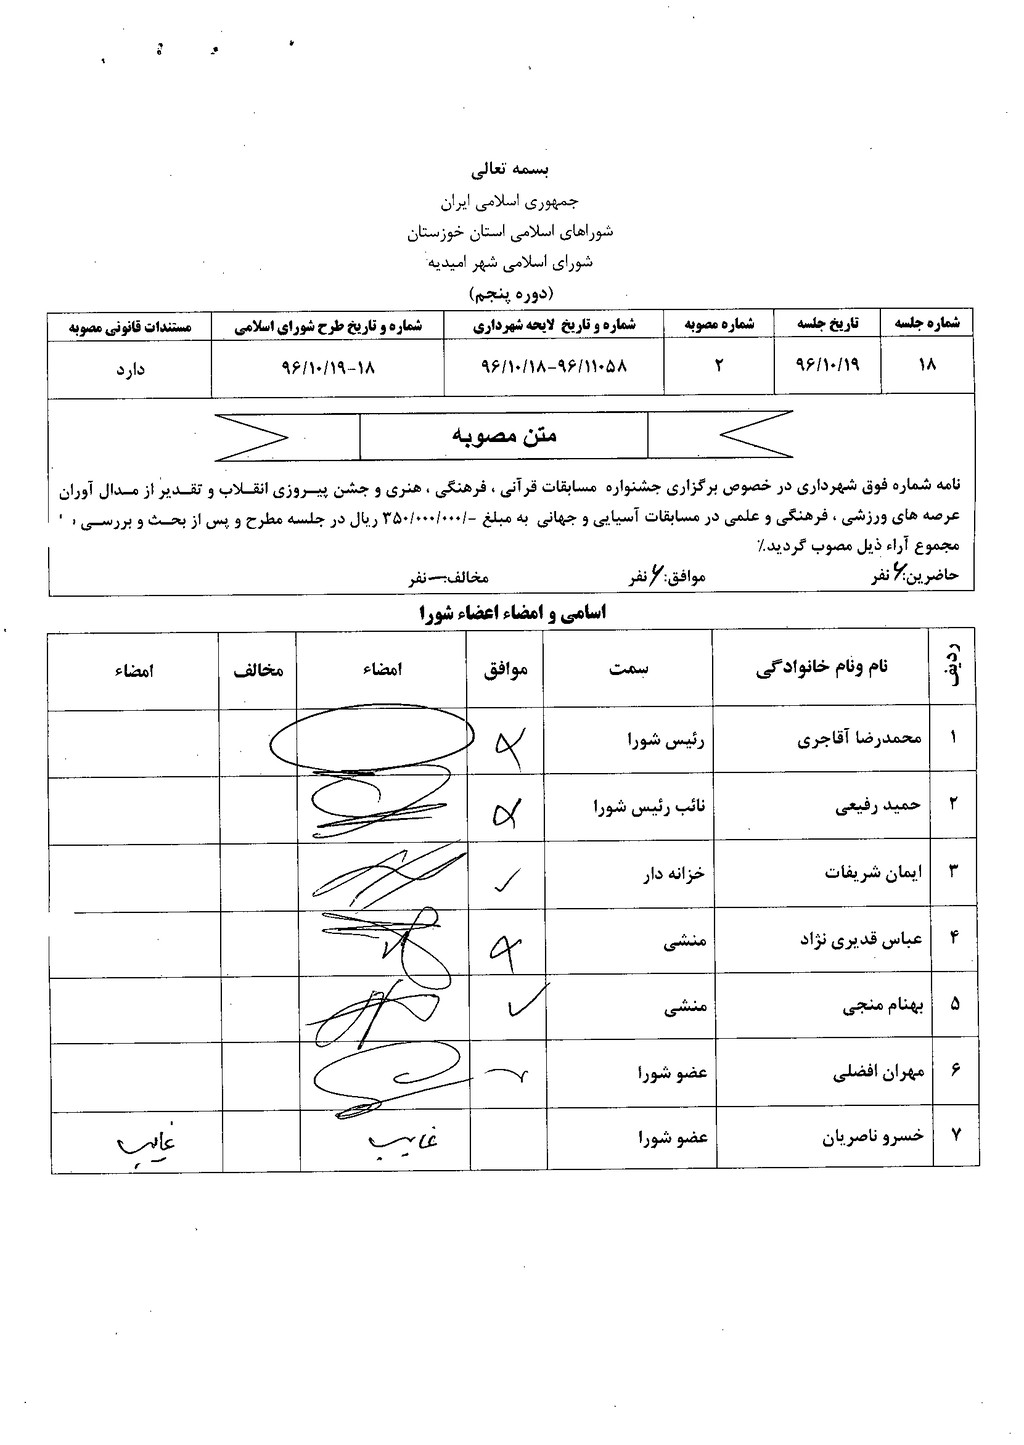 بسمه تعالی
جمهوری اسلامی ایران
شوراهای اسلامی استان خوزستان
شورای اسلامی شهر امیدیه
(دوره پنجم)
شماره جلسه تاریخ جلسه شماره مصوبه شماره و تاریخ لایحه شهرداری شماره و تاریخ طرح شورای اسلامی مستندات قانونی مصوبه
۱۸ ۹۶/۱۰/۱۹ ۲ ۹۶/۱۰/۱۸-۹۶/۱۱۰۵۸ ۹۶/۱۰/۱۹-۱۸ دارد
متن مصوبه
نامه شماره فوق شهرداری در خصوص برگزاری جشنواره مسابقات قرآنی ، فرهنگی ، هنری و جشن پیروزی انقلاب و تقدیر از مدال آوران
عرصه های ورزشی ، فرهنگی و علمی در مسابقات آسیایی و جهانی به مبلغ -/۳۵۰/۰۰۰/۰۰۰ ریال در جلسه مطرح و پس از بحث و بررسی
مجموع آراء ذیل مصوب گردید.٪
حاضرین:۶ نفر موافق:۶ نفر مخالف:— نفر
اسامی و امضاء اعضاء شورا
ردیف نام ونام خانوادگی سمت موافق امضاء مخالف امضاء
۱ محمدرضا آقاجری رئیس شورا
۲ حمید رفیعی نائب رئیس شورا
۳ ایمان شریفات خزانه دار
۴ عباس قدیری نژاد منشی
۵ بهنام منجی منشی
۶ مهران افضلی عضو شورا
۷ خسرو ناصریان عضو شورا غایب غایب